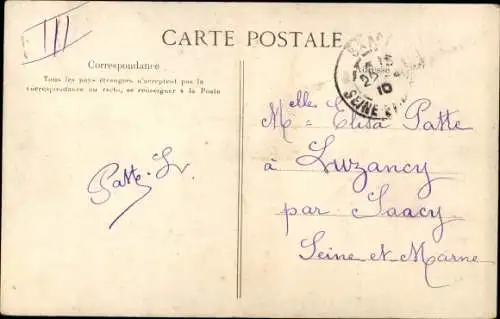 CARTE POSTALE
Correspondance
Tous les pays étrangers n'acceptent pas la
correspondance au recto, se renseigner à la Poste
Adresse
25
10
SEINE
Patte. L.
Melle Elisa Patte
à Luzancy
par Saacy
Seine et Marne